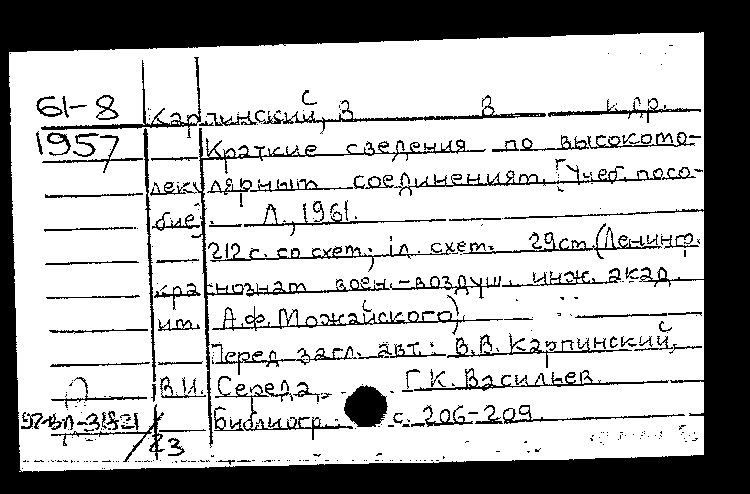 61-8 Карпинский, В В и др.
1957 Краткие сведения по высокомо-
лекулярным соединениям. [Учеб. посо-
бие]. Л., 1961.
212 с. со схем.; 1 л. схем. 29 см (Ленингр.
краснознам воен.-воздуш. инж. акад.
им. А.Ф. Можайского).
Перед загл. авт.: В.В. Карпинский,
В.И. Середа, Г.К. Васильев.
Библиогр.: с. 206-209.